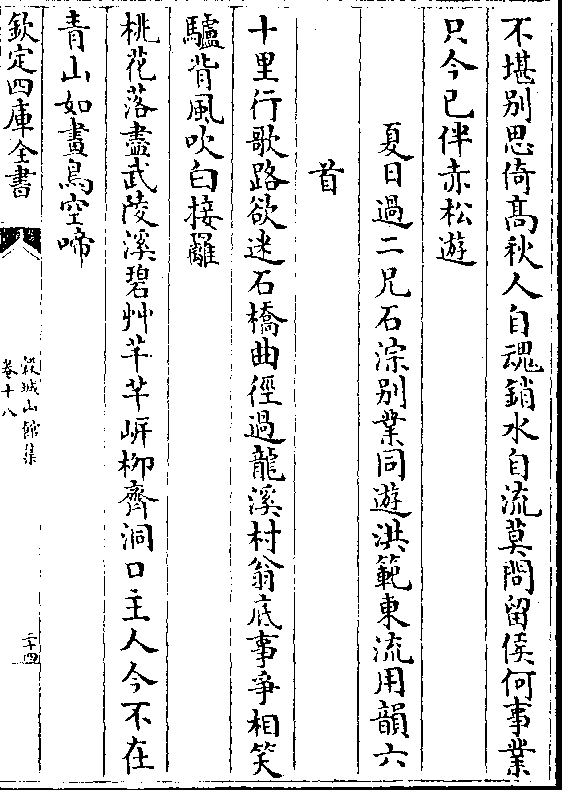 不堪别思倚髙秋人自魂銷水自流莫問留侯何事業
只今已伴赤松遊
夏日過二兄石淙别業同遊洪範東流用韻六
首
十里行歌路欲迷石橋曲徑過龍溪村翁底事爭相笑
驢背風吹白接䍦
桃花落盡武陵溪碧艸芊芊㟁柳齊洞口主人今不在
青山如畫鳥空啼
欽定四庫全書
糓城山館集
卷十八
二十四